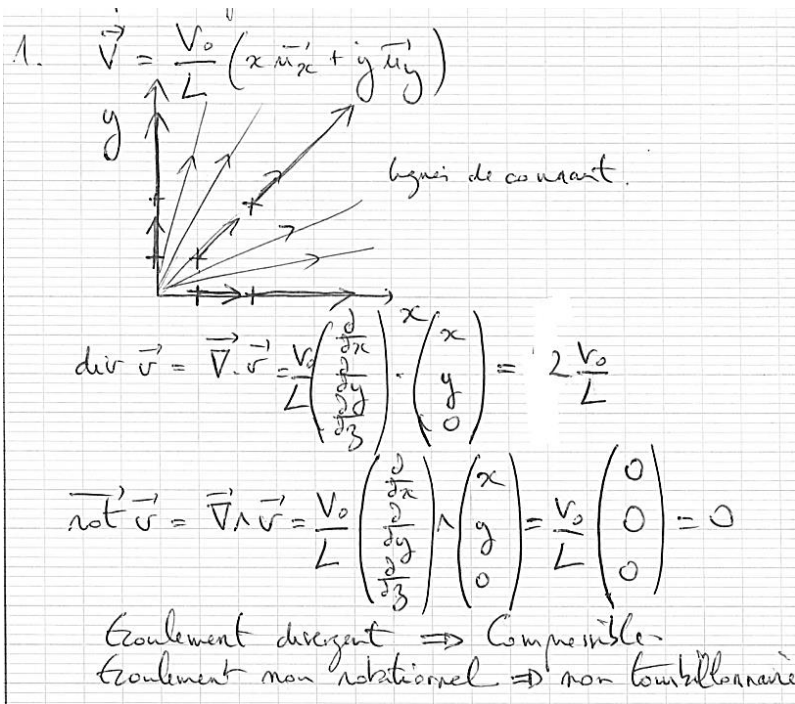 1. $\vec{V} = \frac{V_0}{L} \left( x \vec{u_x} + y \vec{u_y} \right)$
y
lignes de courant.
x
$\text{div } \vec{v} = \vec{\nabla} . \vec{v} = \frac{V_0}{L} \begin{pmatrix} \frac{\partial}{\partial x} \\ \frac{\partial}{\partial y} \\ \frac{\partial}{\partial z} \end{pmatrix} \cdot \begin{pmatrix} x \\ y \\ 0 \end{pmatrix} = 2 \frac{V_0}{L}$
$\overrightarrow{\text{rot}} \, \vec{v} = \vec{\nabla} \wedge \vec{v} = \frac{V_0}{L} \begin{pmatrix} \frac{\partial}{\partial x} \\ \frac{\partial}{\partial y} \\ \frac{\partial}{\partial z} \end{pmatrix} \wedge \begin{pmatrix} x \\ y \\ 0 \end{pmatrix} = \frac{V_0}{L} \begin{pmatrix} 0 \\ 0 \\ 0 \end{pmatrix} = 0$
Ecoulement divergent ⇒ Compressible
Ecoulement non rotationnel ⇒ non tourbillonnaire